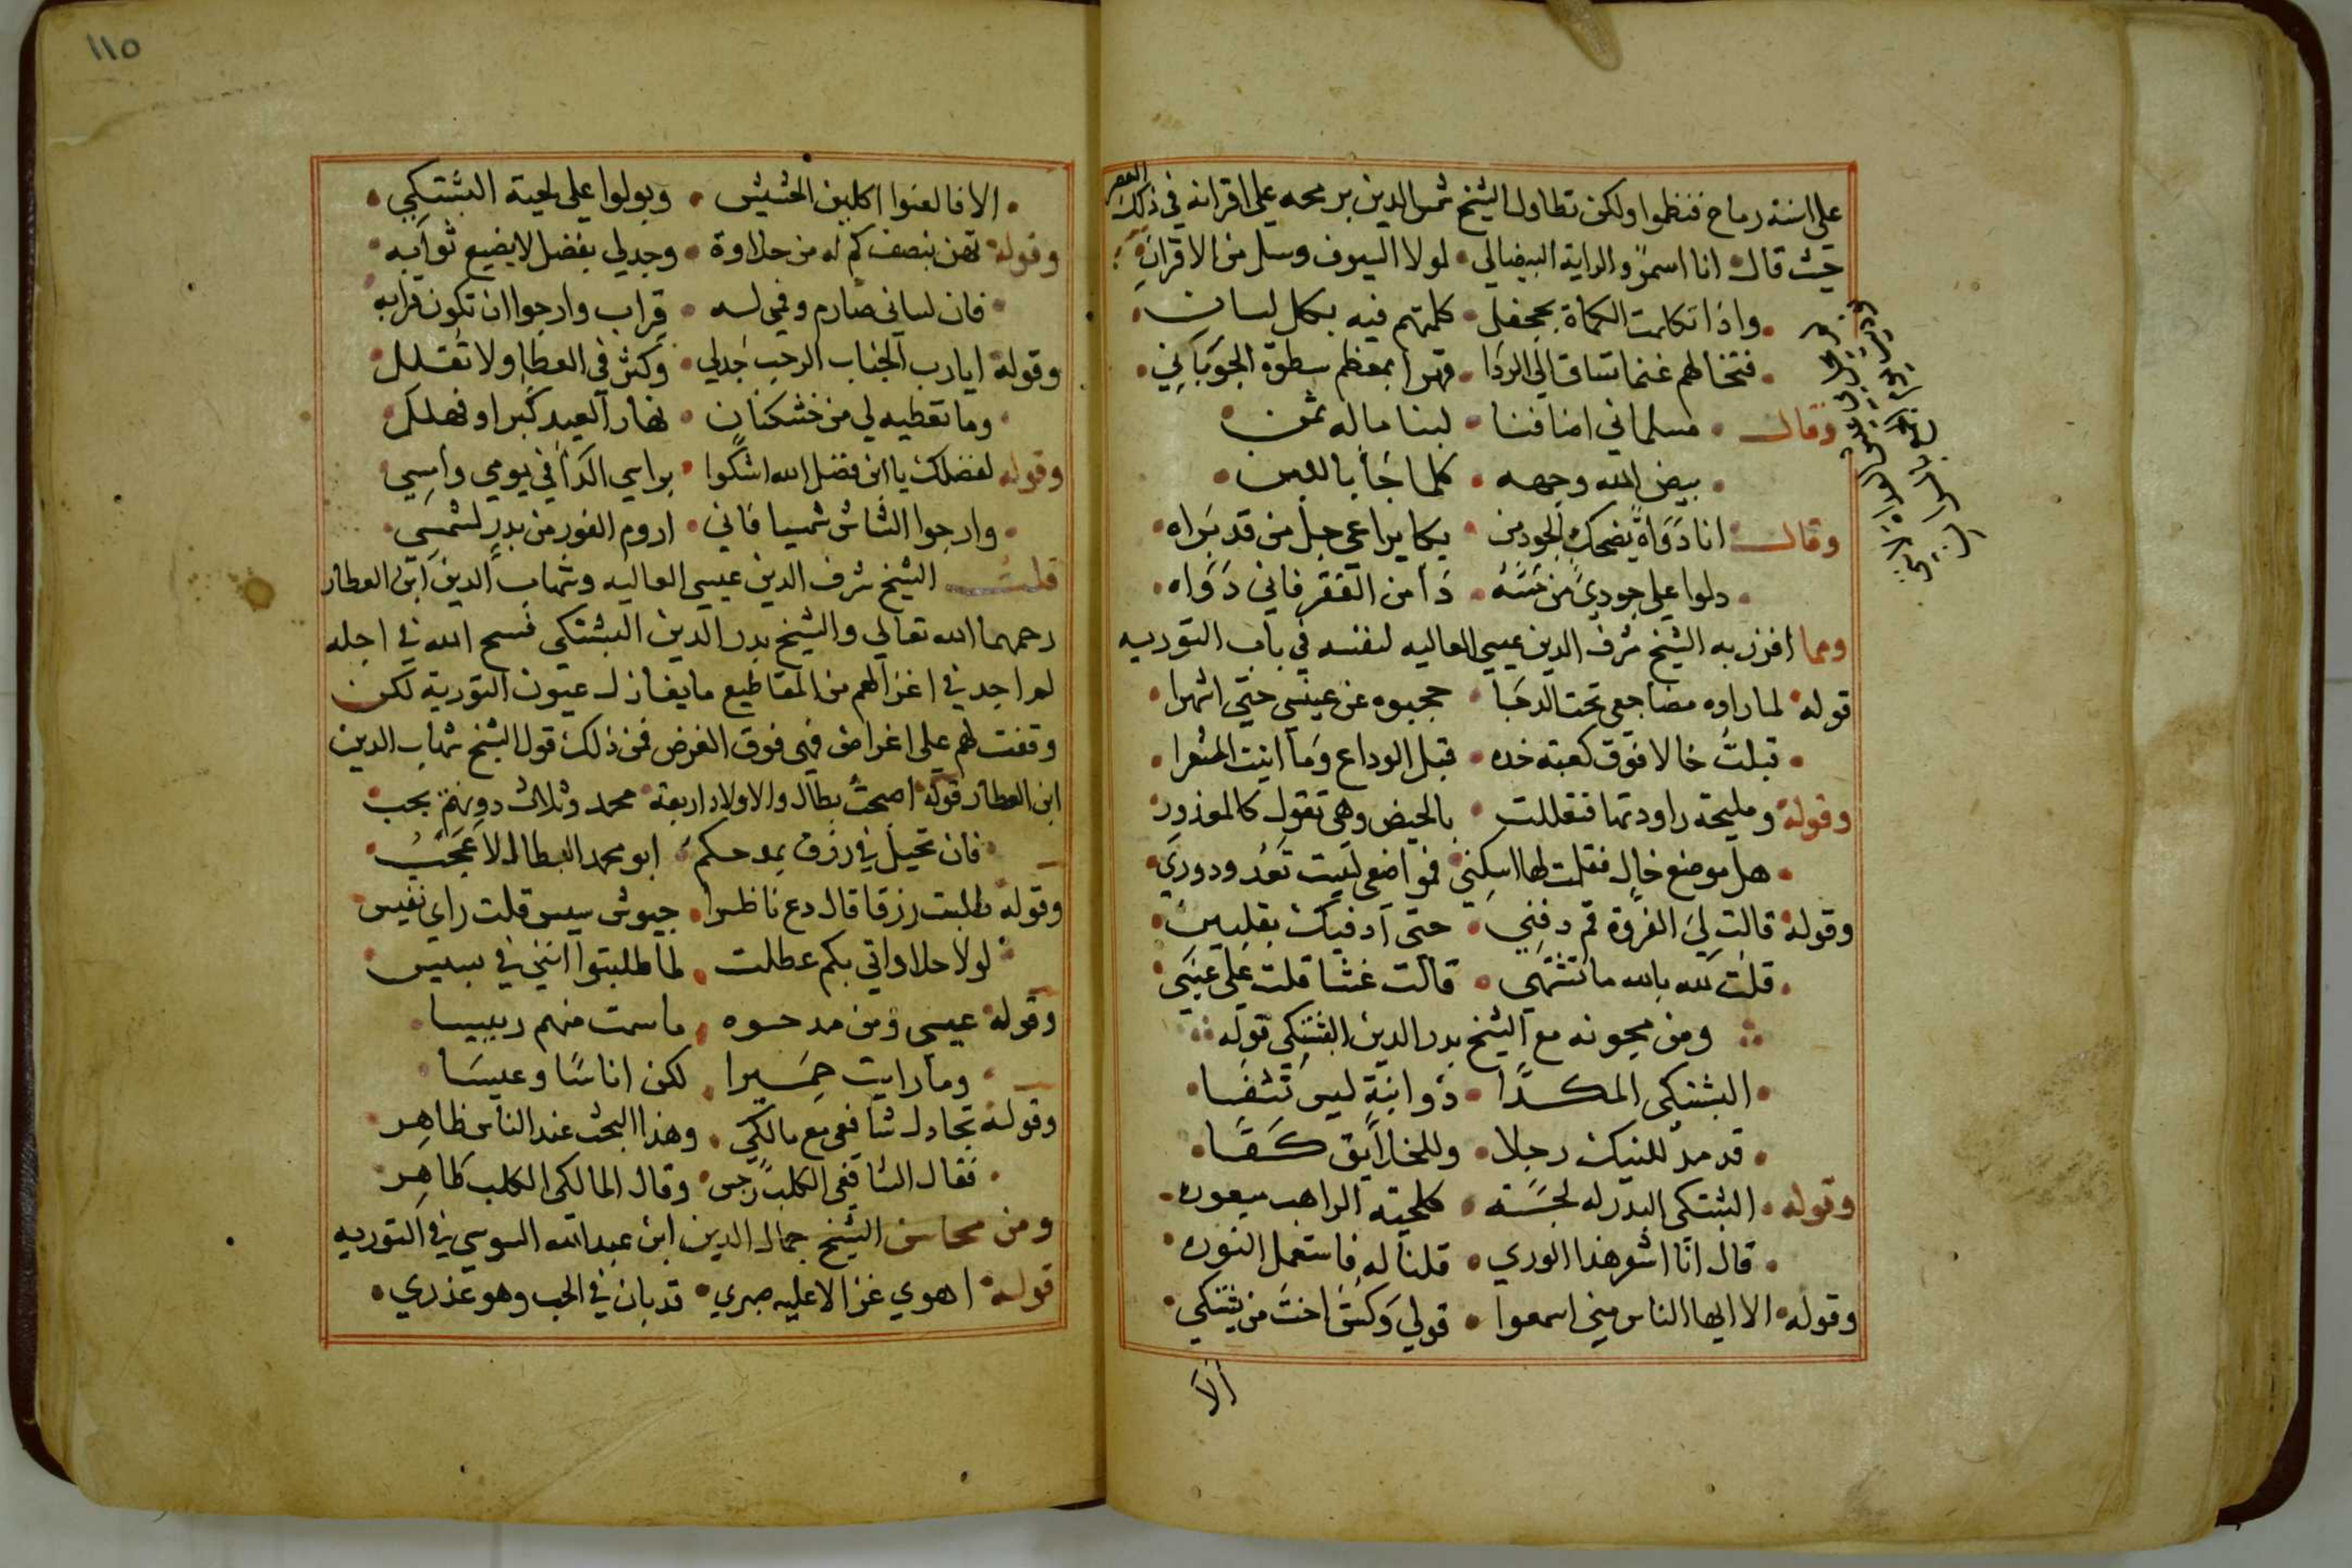 على اسنة رماح فنظموا ولكن تطاول الشيخ شمس الدين برمحه على اقرانه في ذلك العصر
حيث قال انا اسمر والراية البيضالي • لولا السيوف وسل من الاقران
• واذا تكاملت الكماة بجحفل • كلمتهم فيه بكل لسان •
• فتخالهم غنما تساق الي الردا • قهرا بمعظم سطوة الجوباني •
وقال • مسلماني اضافنا • لبنا ماله ثمن •
• بيض الله وجهه • كلما جا باللبن •
وقال انا دواة يضحك الجود من • بكا يراعي جل من قد براه •
• دلوا علي جودي من مسه • دا من الفقر فاني دواه •
ومما افرزبه الشيخ شرف الدين عيسي العاليه لنفسه في باب التوريه
قوله • لما راوه مضاجعي تحت الدجا • حجبوه عن عيني حتي اشهرا •
• قبلت خالا فوق كعبة خده • قبل الوداع وما اتيت المشعرا •
وقوله • ومليحة راودتها فتعللت • بالحيض وهي تقول كالمعذور
• هل موضع خال فقلت لها اسكني • فمواضعي ليست تعد ودوري •
وقوله • قالت لي الفروة قم دفني • حتي ادفيك بقلبين •
• قلت لله بالله ما تشتهي • قالت غشا قلت علي عيني •
ومن مجونه مع الشيخ بدر الدين البشتكي قوله
• البشتكي المكدا • ذو ابنة ليس تشفا •
• قد مد للنيك رجلا • وللخلايق كفا •
وقوله • البشتكي البدر له لحسته • كلحية الراهب ميعوره •
• قال انا اشعر هذا الوري • قلنا له فاستعمل النوره •
وقوله • الا ايها الناس مني اسمعوا • قولي وكس اخت من يشتكي •
الا
١١٥
• الا فالعنوا اكلين الحشيش • وبولوا علي لحية البشتكي •
وقوله • تهن بنصف كم له من حلاوة • وجد لي بفضل لا يضيع ثوابه •
• فان لساني صارم وفمي له • قراب وارجوا ان تكون قرابه
وقوله ايارب الجناب الرحب جد لي • وكثر في العطا ولا تقلل
• وما تعطيه لي من خشكنان • نهار العيد كبر او فهلل
وقوله لفضلك يا ابن فضل الله اشكوا • براسي الدا في يومي وامسي
• وارجوا الشاش شمسيا فاني • اروم الفور من بدر لشمسي •
قلت الشيخ شرف الدين عيسي العاليه وشهاب الدين ابن العطار
رحمهما الله تعالي والشيخ بدر الدين البشتكي فسح الله في اجله
لم اجد في اغزالهم من المقاطيع ما يغازل عيون التورية لكن
وقفت لهم علي اغراض فهي فوق الغرض فمن ذلك قول الشيخ شهاب الدين
ابن العطار قوله • اصبحت بطال والاولاد اربعة • محمد وثلاث دونهم تجب
• فان تحيل في رزق بمدحكم • ابو محمد البطال لا عجب
وقوله طلبت رزقا قال دع ناظرا • جيوش سيس قلت راي نفيس
• لولا حلا واتي بكم عطلت • لما طلبتوا انني في سيس
وقوله • عيسي ومن مدحوه • ما سمت منهم رييسا
• وما رايت حميرا • لكن اناسا وعيسا
وقوله • تجادل شافعي مع مالكي • وهذا البحث عند الناس ظاهر
• فقال الشافعي الكلب رجس • وقال المالكي الكلب طاهر
ومن محاسن الشيخ جمال الدين ابن عبد الله السوسي في التوريه
قوله • اهوي غزالا عليه صبري • قد بان في الحب وهو عذري •